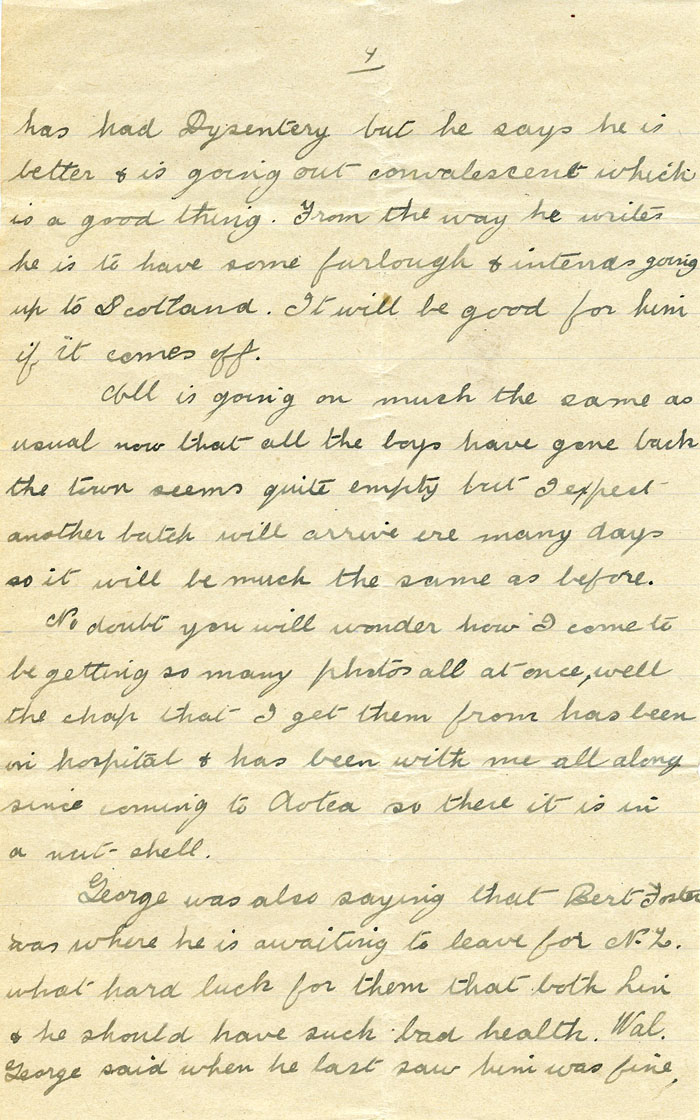 4
has had Dysentery but he says he is
better & is going out convalescent which
is a good thing. From the way he writes
he is to have some furlough & intends going
up to Scotland. It will be good for him
if it comes off.
All is going on much the same as
usual now that all the boys have gone back
the town seems quite empty but I expect
another batch will arrive ere many days
so it will be much the same as before.
No doubt you will wonder how I come to
be getting so many photos all at once, well
the chap that I get them from has been
in hospital & has been with me all along
since coming to Aotea so there it is in
a nut-shell.
George was also saying that Bert Foster
was where he is awaiting to leave for N.Z.
what hard luck for them that both him
& he should have such bad health. Wal.
George said when he last saw him was fine,